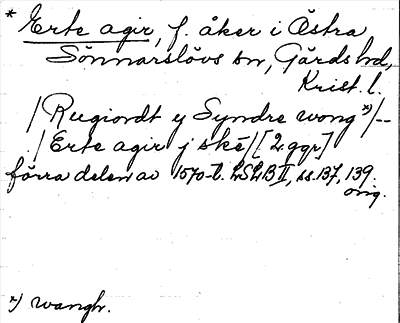 * Erte agir, f. åker i Östra
Sönnarslövs sn, Gärds hd,
Krist. l.
/Rugiordt y Syndre wong *)/--
/Erte agir j skē/[2 ggr]
förra delen av 1570-t. LSLB II, ss. 137, 139.
orig.
*) wangh.